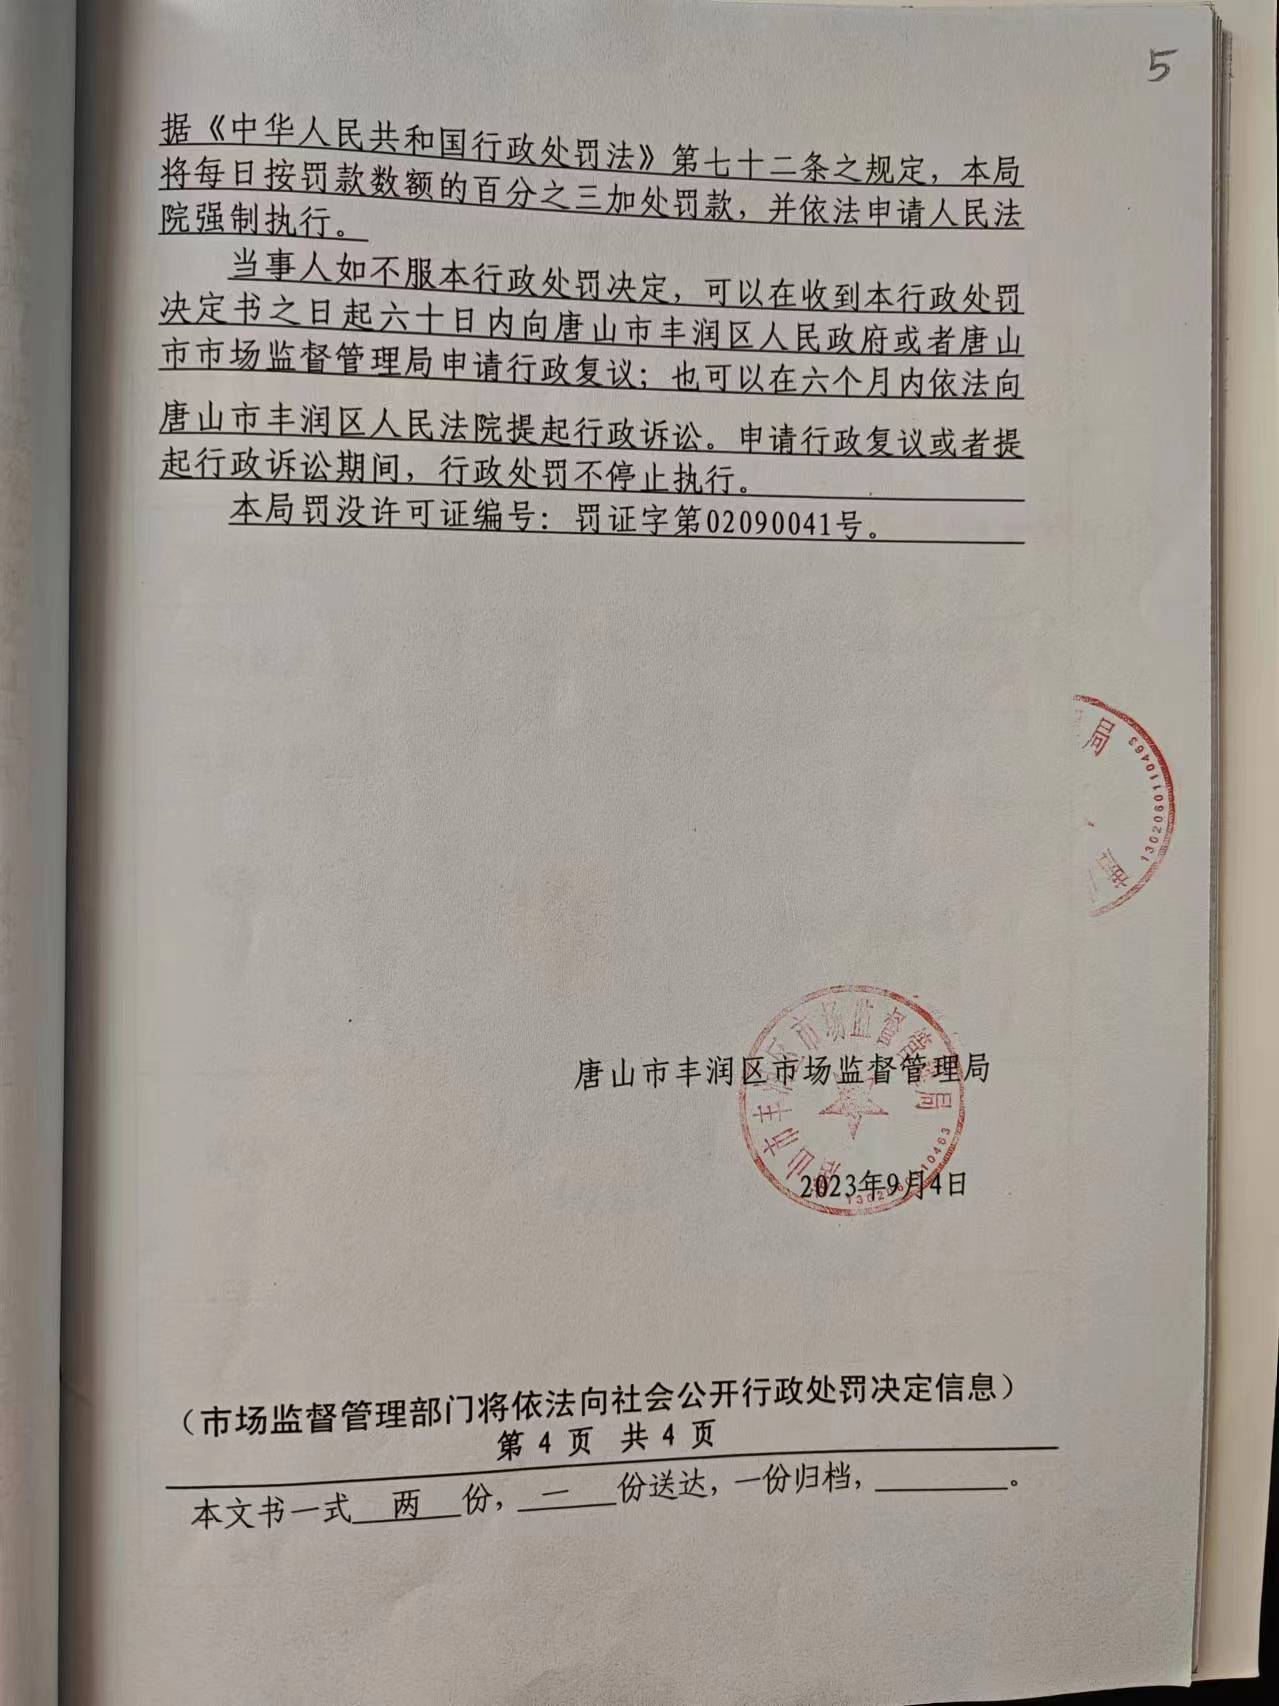 5
据《中华人民共和国行政处罚法》第七十二条之规定，本局
将每日按罚款数额的百分之三加处罚款，并依法申请人民法
院强制执行。
当事人如不服本行政处罚决定，可以在收到本行政处罚
决定书之日起六十日内向唐山市丰润区人民政府或者唐山
市市场监督管理局申请行政复议；也可以在六个月内依法向
唐山市丰润区人民法院提起行政诉讼。申请行政复议或者提
起行政诉讼期间，行政处罚不停止执行。
本局罚没许可证编号：罚证字第02090041号。
局
1302060110463
唐山市丰润区市场监督管理局
唐山市丰润区市场监督管理局
2023年9月4日
1302060110463
（市场监督管理部门将依法向社会公开行政处罚决定信息）
第 4 页 共 4 页
本文书一式 两 份， 一 份送达，一份归档，________。